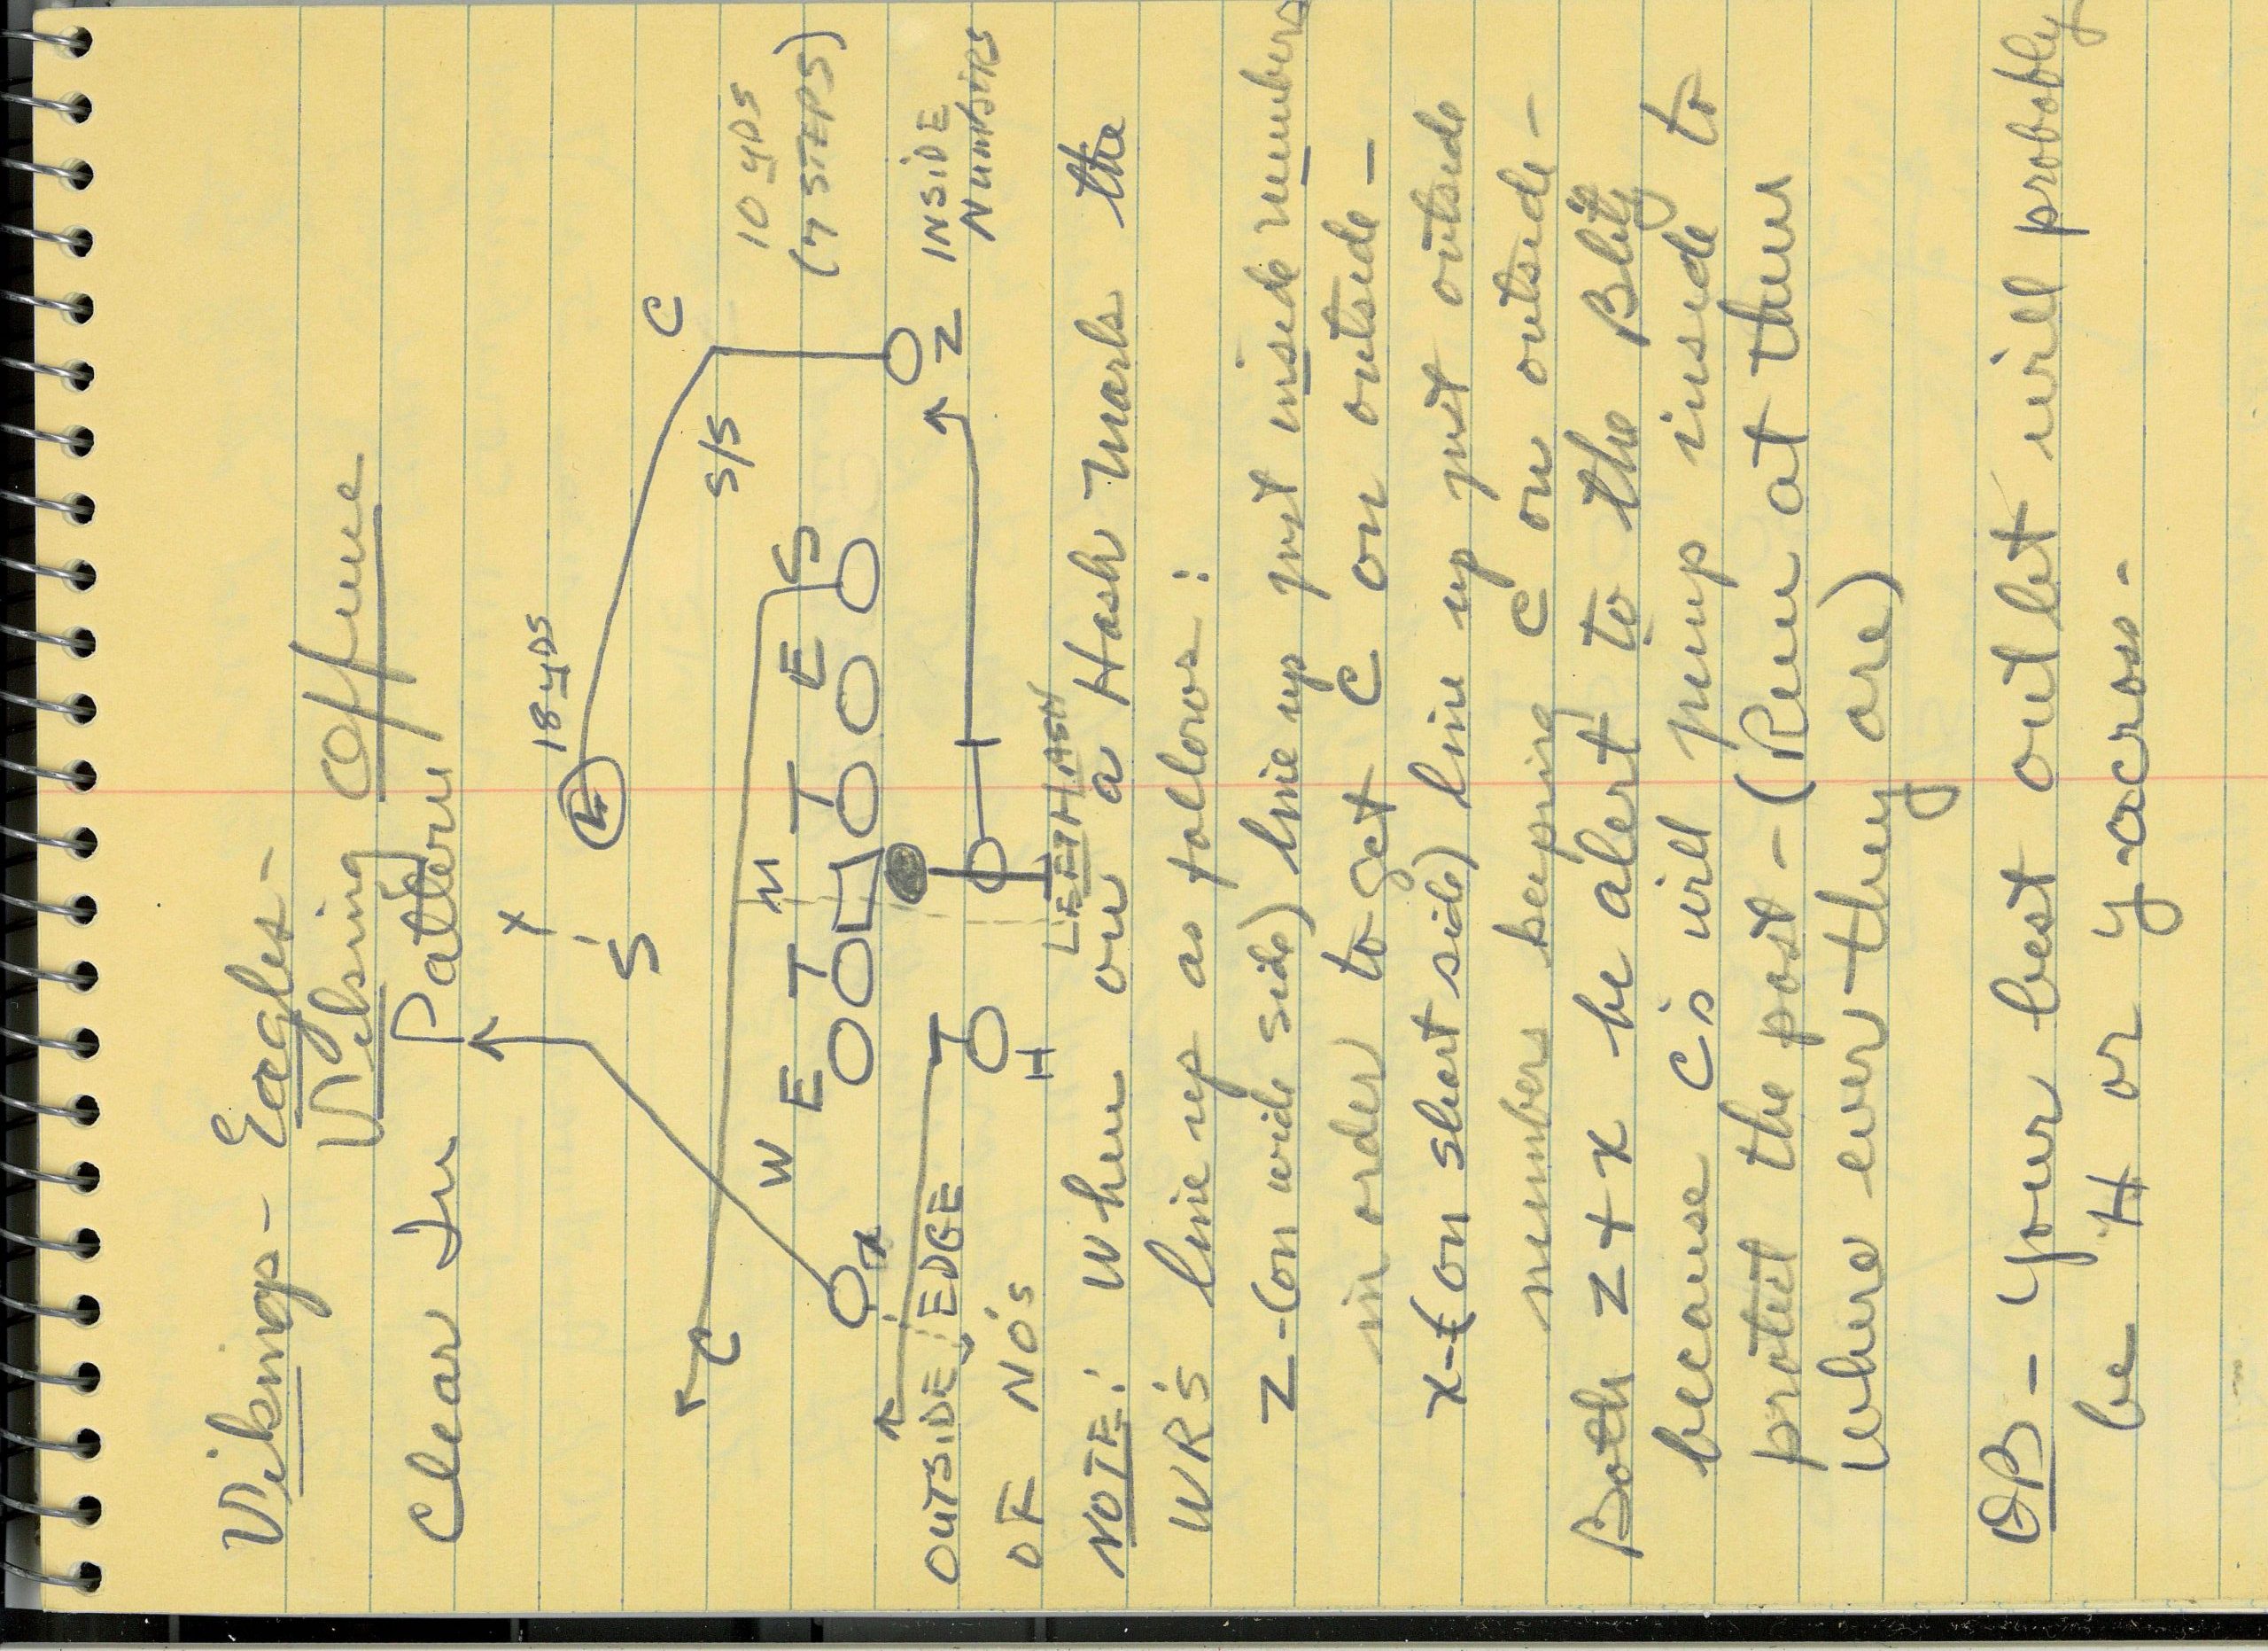 Vikings - Eagles -
Viking Offense
Clear In Pattern
18 yds
X
S
C
10 yds
(7 STEPS)
S/S
W E T M T E S
C
X
Z INSIDE
NUMBERS
OUTSIDE EDGE
OF NO'S
H
LEFT HASH
NOTE: When on a Hash Marks the
WR'S line up as follows:
Z-(on wide side) line up just inside numbers
in order to get C on outside -
X-(on short side) line up just outside
numbers keeping C on outside -
Both Z + X be alert to the Blitz
because C's will jump inside to
protect the post - (Run at them
where ever they are)
QB - Your best outlet will probably
be H or y-across -